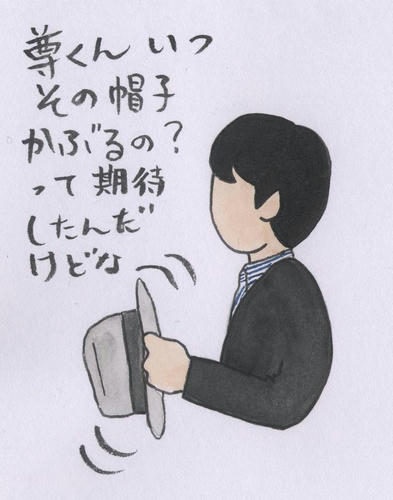 尊くんいつ
その帽子
かぶるの?
って期待
したんだ
けどな